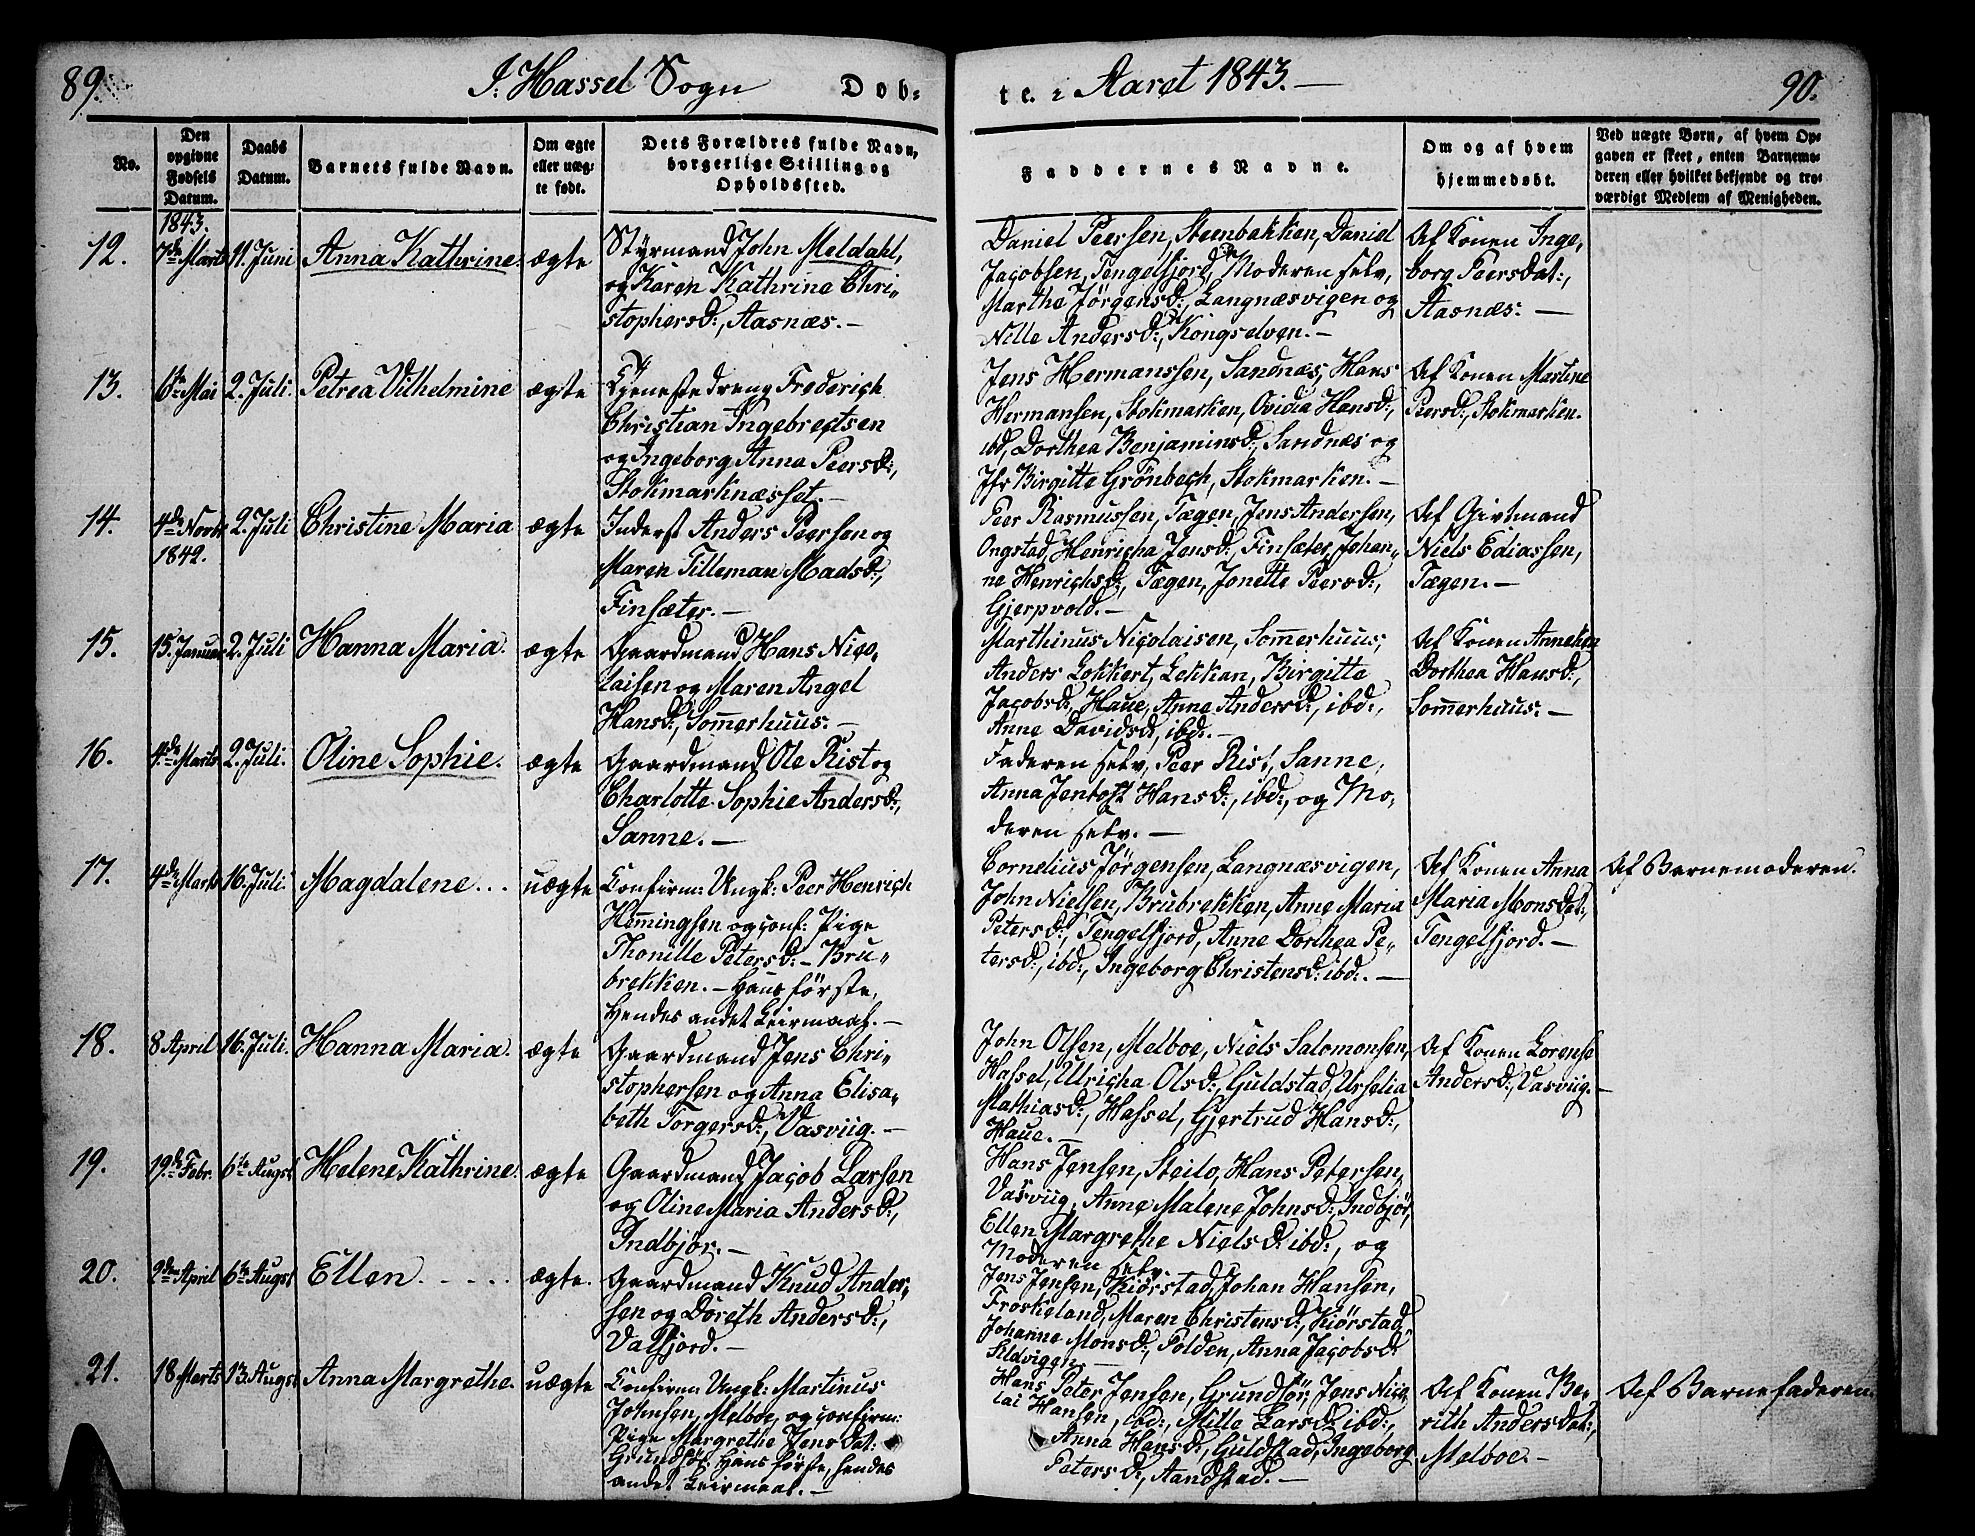 89.
I. Hassel Sogn
Dob-
te. i Aaret 1843.-
90.
No.
Den opgivne Fødsels Datum.
Daabs Datum.
Barnets fulde Navn.
Om ægte eller uæg- te født.
Dets Forældres fulde Navn, borgerlige Stilling og Opholdsted.
Faddernes Navne.
Om og af hvem hjemmedøbt.
Ved uægte Børn, af hvem Op- gaven er skeet, enten Barnemo- deren eller hvilket bekjendt og tro- værdigt Medlem af Menigheden.
1843.
12.
7de Marts
11. Juni
Anna Kathrine.
ægte
Styrmand John Meldahl,
og Karen Kathrine Chri-
stophersd:, Aasnæs.-
Daniel Peersen, Steenbakken, Daniel
Jacobsen, Tengelfjord, Moderen selv,
Marthe Jørgensd:, Langnæsvigen og
Nille Andersd:, Kongselven.-
Af Konen Inge-
borg Peersdat:,
Aasnæs: -
13.
6te Mai
2. Juli.
Petrea Vilhelmine
ægte
Tjenestedreng Frederich
Christian Ingebregtsen
og Ingeborg Anna Peersd:,
Stokmarknæsset.-
Jens Hermanssen, Sandnæs, Hans
Hermansen, Stokmarken, Ovidia Hansd:,
ibd, Dorthea Benjaminsd:, Sandnæs og
Jfr Birgitte Grønbech, Stokmarken.-
Af Konen Martine
Peersd:, Stokmarken.
14.
4de Novbr
1842.
2. Juli
Christine Maria
ægte
Inderst Anders Peersen og
Maren Tilleman Madsd:,
Finsæter.-
Peer Rasmussen, Tægen, Jens Andersen,
Ongstad, Henricha Jensd:, Finsæter, Johan-
ne Henrichsd:, Tægen, Jonette Peersd:,
Gjerpvold.-
Af Givtmand
Niels Ediassen,
Tægen.-
15.
15. Januar
2. Juli
Hanna Maria.
ægte
Gaardmand Hans Nico-
laisen og Maren Angel
Hansd:, Sommerhuus.-
Marthinus Nicolaisen, Sommerhuus,
Anders Lokkert, Lekkan, Birgitte
Jacobsd:, Haue, Anne Andersd:, ibd:,
Anne Davidsd:, ibd:.-
Af Konen Anneken
Dorthea Hansd:,
Sommerhuus.-
16.
4de Marts
2. Juli.
Oline Sophie.
ægte
Gaardmand Ole Rist og
Charlotte Sophie Andersd:,
Sanne.-
Faderen selv, Peer Rist, Sanne,
Anna Jentoft Hansd:, ibd:, og Mo-
deren selv.-
17.
4de Marts
16. Juli.
Magdalene...
uægte
Confirm: Ungk: Peer Henrich
Hemingsen og conf: Pige
Thonille Petersd:- Bru-
brekken.- Hans første,
Hendes andet Leirmaal.-
Cornelius Jørgensen, Langnæsvigen,
John Nielsen, Brubrekken, Anne Maria
Petersd:, Tengelfjord, Anne Dorthea Pe-
tersd:, ibd:, Ingeborg Christensd: ibd:.-
Af Konen Anna
Maria Monsdat:,
Tengelfjord.-
Af Barnemoderen.
18.
8 April
16. Juli.
Hanna Maria.
ægte
Gaardmand Jens Chri-
stophersen og Anna Elisa-
beth Torgersd:, Vasviig.-
John Olsen, Melboe, Niels Salomonsen,
Hassel, Ulricha Olsd:, Guldstad, Urselia
Mathiasd:, Hassel, Gjertrud Hansd:,
Haue.-
Af Konen Lorense
Andersd:, Vasviig.-
19.
19de Febr.
6te Augst
Helene Kathrine.
ægte
Gaardmand Jacob Larsen
og Oline Maria Andersd:,
Indbjør.-
Hans Jensen, Steilo, Hans Petersen,
Vasviig, Anne Malene Johnsd:, Indbjør,
Ellen Margrethe Nielsd: ibd:, og
Moderen selv.
20.
2den April
6te Augst
Ellen. . . . .
ægte.
Gaardmand Knud Ander-
sen og Doreth Andersd:,
Valfjord.-
Jens Jensen, Kiørstad, Johan Hansen,
Froskeland, Maren Christensd:, Kiørstad,
Johanne Monsd:, Polden, Anna Jacobsd:
Sildvigen.-
21.
18 Marts
13. Augst
Anna Margrethe.
uægte
Confirm: Ungk: Martinus
Johnsen, Melboe, og confirm:
Pige Margrethe Jensdat:
Grundfør. Hans første, hendes
andet Leirmaal.-
Hans Peter Jensen, Grundfør, Jens Nico-
lai Hansen, ibd:, Mille Larsd: ibd:,
Anna Hansd:, Guldstad, Ingeborg
Petersd:, Aandstad.-
Af Konen Be-
rith Andersdat:,
Melboe.-
Af Barnefaderen.